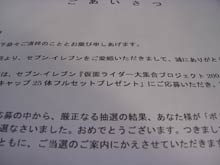 ごあいさつ
下益々ご清祥のこととお慶び申しあげます。
より、セブン-イレブンをご愛顧いただきまして、誠にありがと
は、セブン-イレブン『仮面ライダー大集合プロジェクト200
キャップ25体フルセットプレゼント』にご応募いただき、
応募の中から、厳正なる抽選の結果、あなた様が「ボ
選なさいました。おめでとうございます。つきまし
ともに、ご当選のご案内にかえさせていただきま